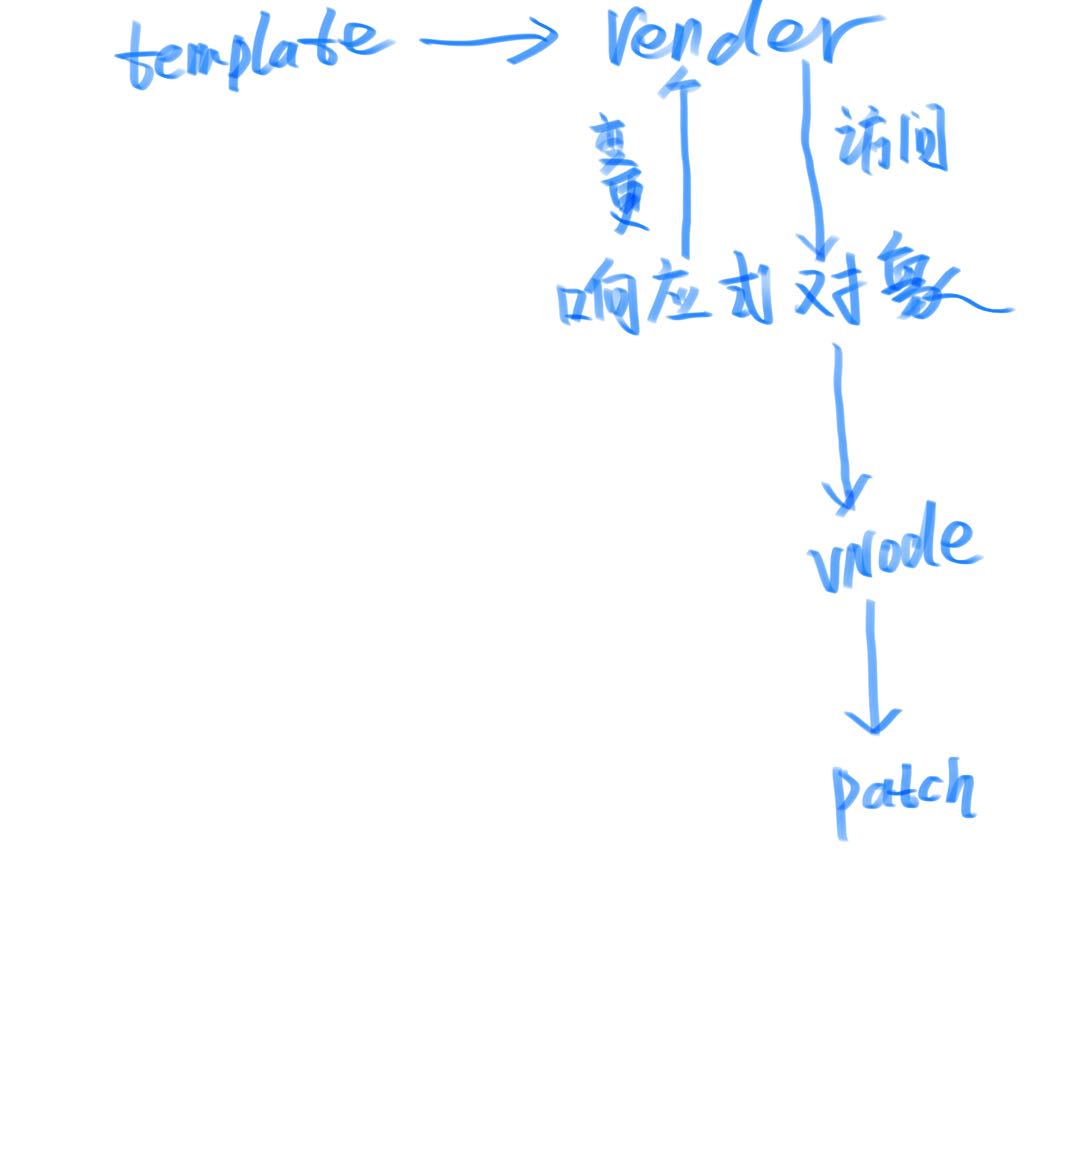 template render
变更
访问
响应式对象
vnode
patch